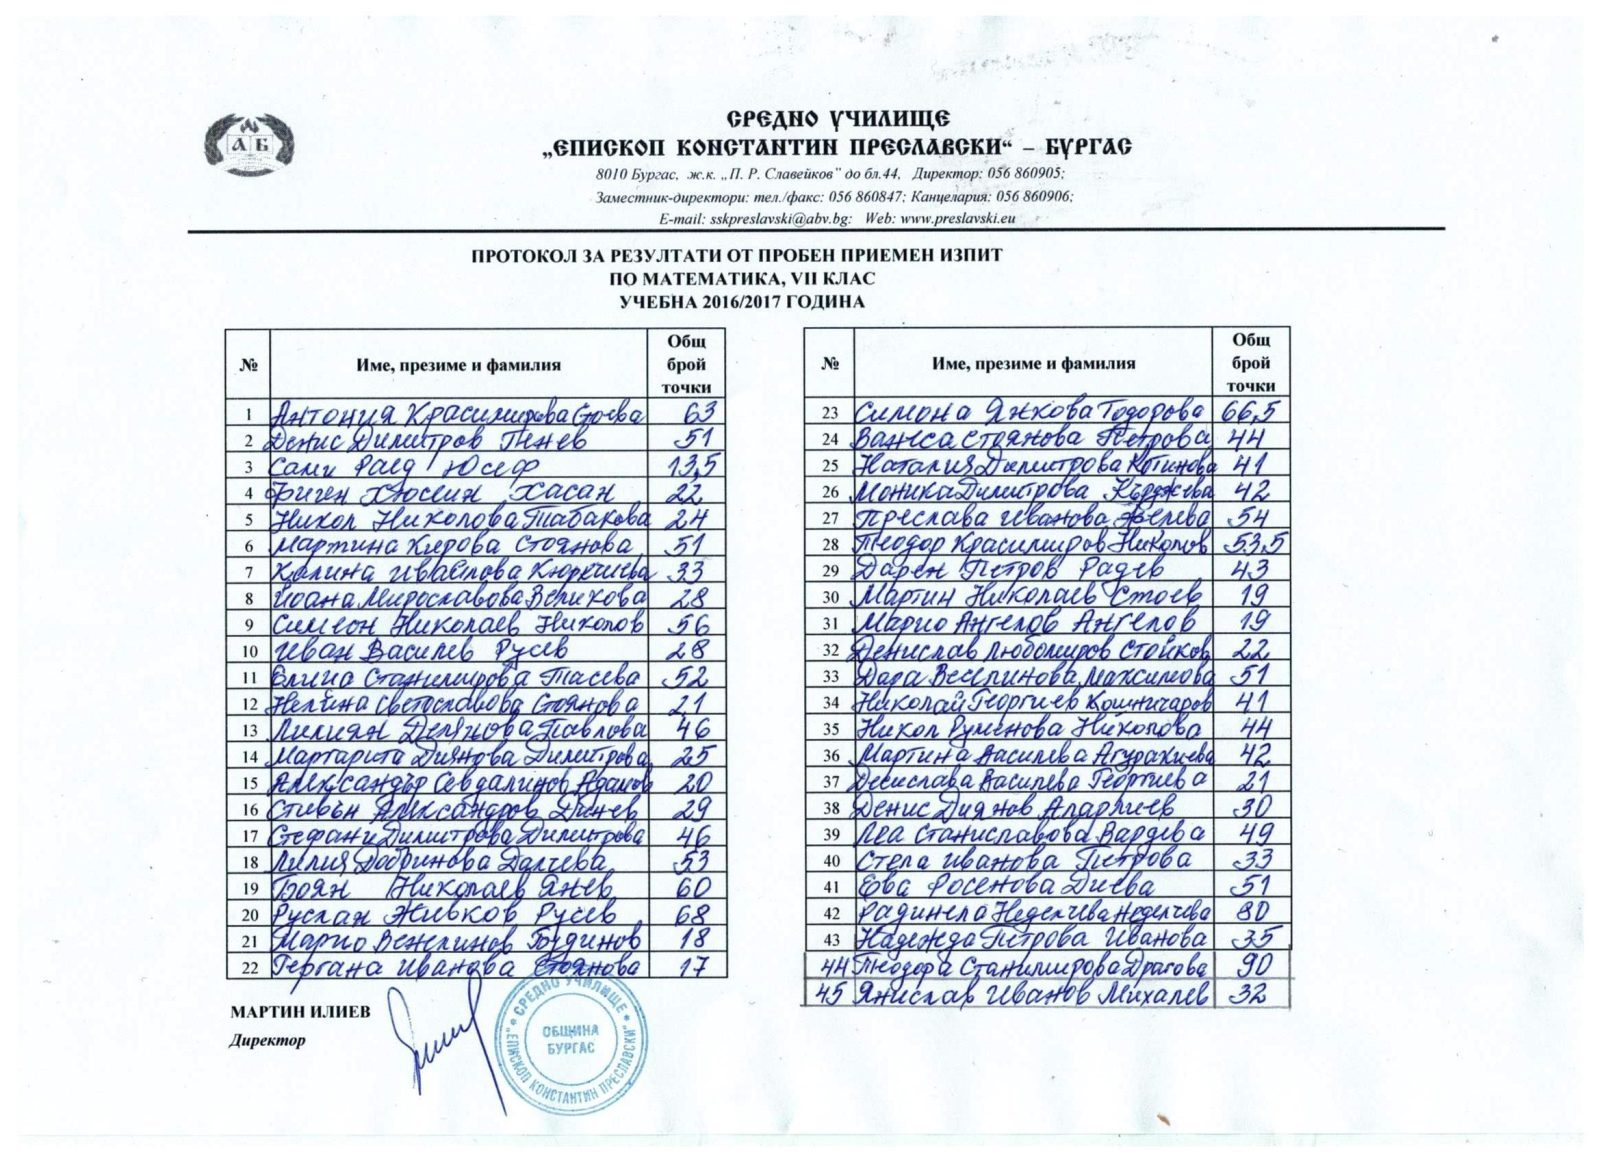 А Б
СРЕДНО УЧИЛИЩЕ
„ЕПИСКОП КОНСТАНТИН ПРЕСЛАВСКИ“ – БУРГАС
8010 Бургас, ж.к. „П. Р. Славейков" до бл.44, Директор: 056 860905;
Заместник-директори: тел./факс: 056 860847; Канцелария: 056 860906;
E-mail: sskpreslavski@abv.bg: Web: www.preslavski.eu
ПРОТОКОЛ ЗА РЕЗУЛТАТИ ОТ ПРОБЕН ПРИЕМЕН ИЗПИТ
ПО МАТЕМАТИКА, VII КЛАС
УЧЕБНА 2016/2017 ГОДИНА
№ Име, презиме и фамилия Общ брой точки
1 Антония Красимирова Стоева 63
2 Денис Димитров Пенев 51
3 Сами Раед Юсеф 13,5
4 Фиген Хюсеин Хасан 22
5 Никол Николова Табакова 24
6 Мартина Кирова Стоянова 51
7 Калина Ивайлова Кюркчиева 33
8 Йоана Мирославова Великова 28
9 Симеон Николаев Николов 56
10 Иван Василев Русев 28
11 Елина Станимирова Тасева 52
12 Нелина Светославова Стоянова 21
13 Лилиян Делянова Павлова 46
14 Маргарита Диянова Димитрова 25
15 Александър Севдалинов Адамов 20
16 Стивън Александров Динев 29
17 Стефани Димитрова Димитрова 46
18 Лилия Добринова Далчева 53
19 Боян Николаев Янев 60
20 Руслан Живков Русев 68
21 Марио Венелинов Гочдинов 18
22 Гергана Иванова Стоянова 17
№ Име, презиме и фамилия Общ брой точки
23 Симона Янкова Тодорова 66,5
24 Ванеса Стоянова Петрова 44
25 Наталия Димитрова Котинова 41
26 Моника Димитрова Кърджева 42
27 Преслава Иванова Велева 54
28 Теодор Красимиров Николов 53,5
29 Дарен Петров Радев 43
30 Мартин Николаев Стоев 19
31 Марио Ангелов Ангелов 19
32 Денислав Любомиров Стойков 22
33 Дара Веселинова Максимова 51
34 Николай Георгиев Кошничаров 41
35 Никол Руменова Николова 44
36 Мартина Василева 42
37 Десислава Василева Георгиева 21
38 Денис Диянов 30
39 Леа Станиславова Вардева 49
40 Стела Иванова Петрова 33
41 Ева Росенова Диева 51
42 Радинела Неделчева Неделчева 80
43 Надежда Петрова Иванова 35
44 Теодора Станимирова Драгова 90
45 Янислав Иванов Михалев 32
МАРТИН ИЛИЕВ
Директор
СРЕДНО УЧИЛИЩЕ
„ЕПИСКОП КОНСТАНТИН ПРЕСЛАВСКИ"
ОБЩИНА
БУРГАС